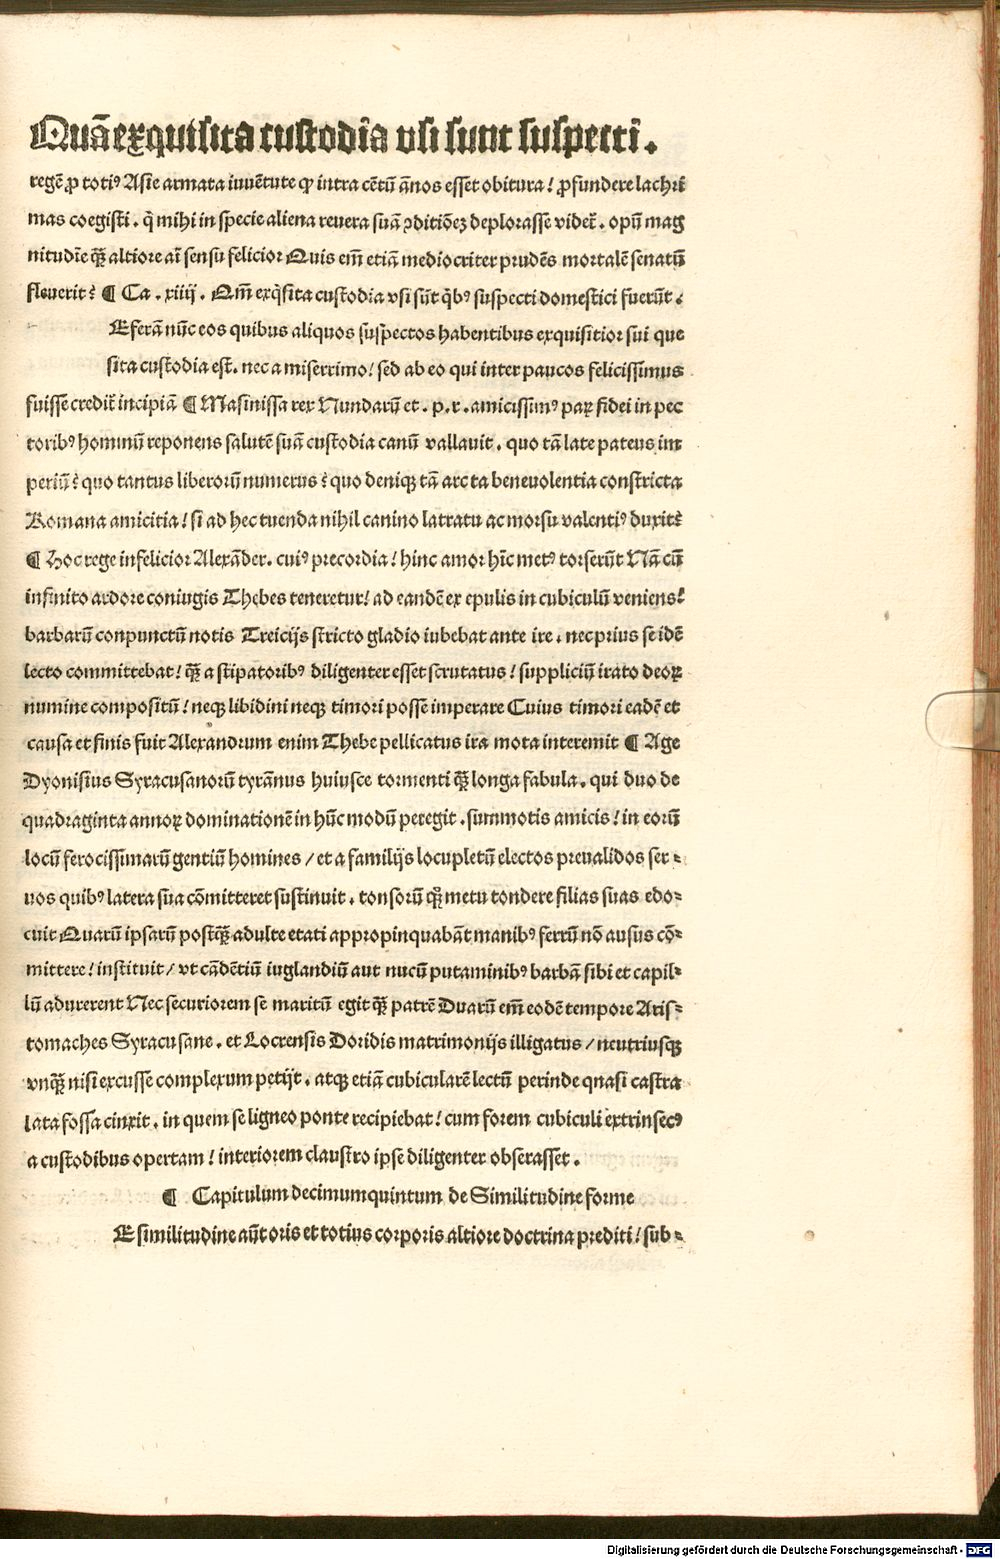 Quā exquisita custodia vsi sunt suspecti.
regē ꝓ totiꝰ Asie armata iuuētute ꝙ intra cētū ānos esset obitura / ꝓfundere lachri
mas coegisti . q̄ mihi in specie aliena reuera suā ꝯditiōeꝫ deplorasse videt᷑ . opū mag
nitudīe qꝫ̄ altiore aī sensu felicior Quis em̄ etiā mediocriter prudēs mortalē senatū
fleuerit? ¶ Ca . xiiij . Qm̄ exq̄sita custodia vsi sūt q̄bꝰ suspecti domestici fuerūt .
Eferā nūc eos quibus aliquos suspectos habentibus exquisitior sui que
sita custodia est . nec a miserrimo / sed ab eo qui inter paucos felicissimus
fuisse credit᷑ incipiā ¶ Masinissa rex Nundarū et . p . r . amicissimꝰ paꝝ fidei in pec
toribꝰ hominū reponens salutē suā custodia canū vallauit . quo tā late patens im
periū? quo tantus liberorū numerus? quo deniqꝫ tā arcta beneuolentia constricta
Romana amicitia / si ad hec tuenda nihil canino latratu ac morsu valentiꝰ duxit?
¶ Hoc rege infelicior Alexāder . cuiꝰ precordia / hinc amor hīc metꝰ torserūt Nā cū
infinito ardore coniugis Thebes teneretur / ad eandē ex epulis in cubiculū veniens /
barbarū conpunctū notis Treicijs stricto gladio iubebat ante ire . nec prius se idē
lecto committebat / qꝫ̄ a stipatoribꝰ diligenter esset scrutatus / suppliciū irato deoꝝ
numine compositū / neqꝫ libidini neqꝫ timori posse imperare Cuius timori eadē et
causa et finis fuit Alexandrum enim Thebe pellicatus ira mota interemit ¶ Age
Dyonisius Syracusanorū tyrānus huiusce tormenti qꝫ̄ longa fabula . qui duo de
quadraginta annoꝝ dominationē in hūc modū peregit . summotis amicis / in eorū
locū ferocissimarū gentiū homines / et a familijs locupletū electos preualidos ser-
uos quibꝰ latera sua cōmitteret sustinuit . tonsorū qꝫ metu tondere filias suas edo-
cuit Quarū ipsarū postqꝫ̄ adulte etati appropinquabāt manibꝰ ferrū nō ausus cō-
mittere / instituit / vt cādētiū iuglandiū aut nucū putaminibꝰ barbā sibi et capil-
lū adurerent Nec securiorem se maritū egit qꝫ̄ patrē Duarū em̄ eodē tempore Aris-
tomaches Syracusane . et Locrensis Doridis matrimonijs illigatus / neutriusqꝫ
vnqꝫ̄ nisi excusse complexum petijt . atqꝫ etiā cubicularē lectū perinde quasi castra
lata fossa cinxit . in quem se ligneo ponte recipiebat / cum forem cubiculi extrinsecꝰ
a custodibus opertam / interiorem claustro ipse diligenter obserasset .
¶ Capitulum decimumquintum de Similitudine forme
E similitudine aūt oris et totius corporis altiore doctrina prediti / sub-
Digitalisierung gefördert durch die Deutsche Forschungsgemeinschaft - DFG